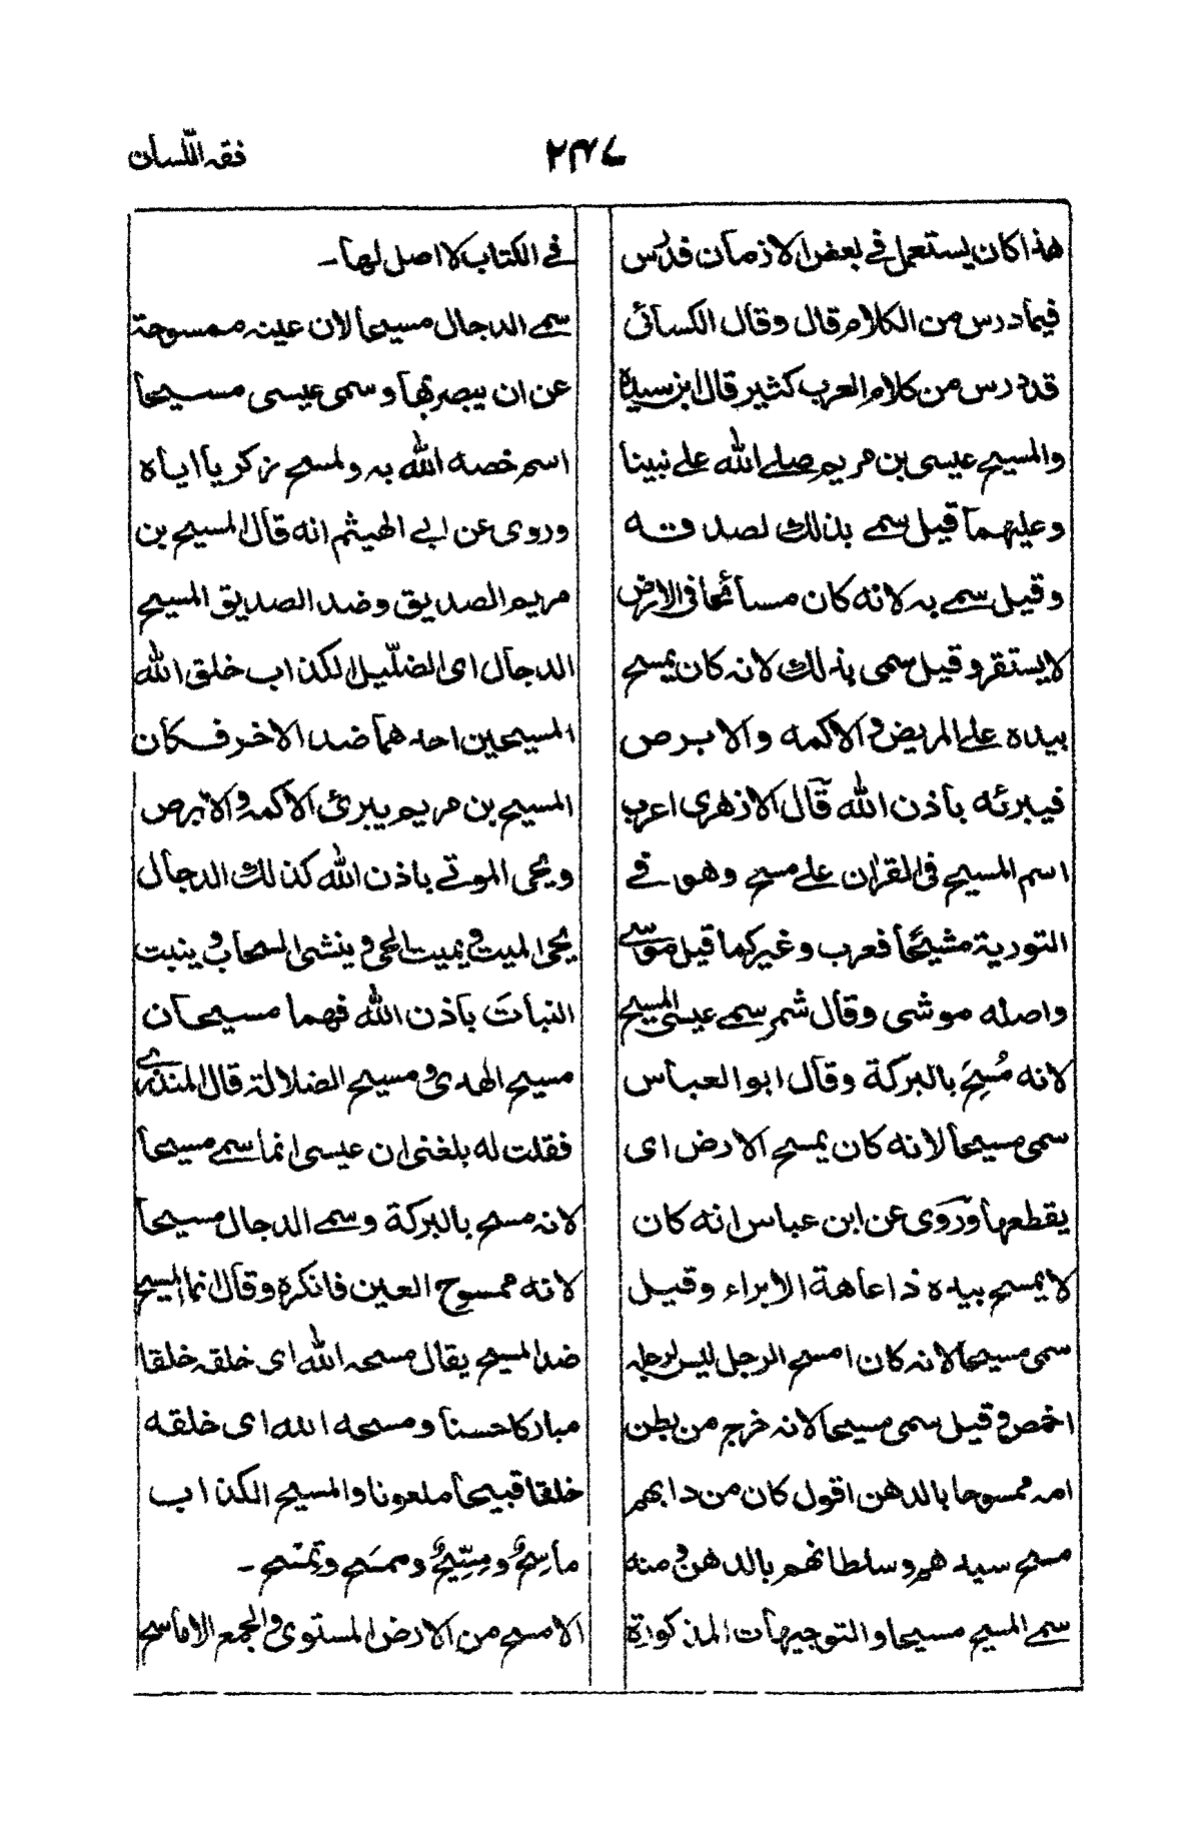 فقہ اللّسان
۲۴۷
هذا كان يستعمل فے بعض الازمان فدرس
فيما درس من الكلام قال وقال الكسائى
قد درس من كلام العرب كثير قال ابن سيده
والمسيح عيسى بن مريم صلے الله علے نبينا
وعليهما قيل سمے بذلك لصدقه
وقيل سمے به لانه كان مسائحا فى الارض
لا يستقر وقيل سمى بذلك لانه كان يمسح
بيده علے المريض و الاكمه والابرص
فيبرئه باذن الله قال الازهرى اعرب
اسم المسيح فى القرآن علے مسح وهو فے
التورية مشيحا فعرب وغير كما قيل موسے
واصله موشى وقال شمر سمے عيسى المسيح
لانه مُسِحَ بالبركة وقال ابو العباس
سمى مسيحا لانه كان يمسح الارض اى
يقطعها وروى عن ابن عباس انه كان
لا يمسح بيده ذا عاهة الا براء وقيل
سمى مسيحا لانه كان امسح الرجل ليس لرجله
اخمص وقيل سمى مسيحا لانه خرج من بطن
امه ممسوحا بالدهن اقول كان من دابهم
مسح سيدهم وسلطانهم بالدهن و منه
سمے المسيح مسيحا والتوجيهات المذكورة
فے الكتاب لا اصل لها ـ
سمے الدجال مسيحا لان عينه ممسوحة
عن ان يبصر بها وسمى عيسى مسيحا
اسم خصه الله به ولمسح زكريا اياه
وروى عن ابے الهيثم انه قال المسيح بن
مريم الصديق وضد الصديق المسيح
الدجال اى الضلّيل الكذاب خلق الله
المسيحين احدهما ضد الاخر فكان
المسيح بن مريم يبرئ الاكمه والابرص
ويحى الموتے باذن الله كذلك الدجال
يحى الميت و يميت الحى و ينشى السحاب و ينبت
النبات باذن الله فهما مسيحان
مسيح الهدى و مسيح الضلالة قال المنذرے
فقلت له بلغنى ان عيسى انما سمے مسيحا
لانه مسح بالبركة وسمے الدجال مسيحا
لانه ممسوح العين فانكره وقال انما المسيح
ضد المسيح يقال مسحه الله اى خلقه خلقا
مباركا حسنا ومسحه الله اى خلقه
خلقا قبيحا ملعونا والمسيح الكذاب
ماسِحٌ ومِسّيحٌ وممسَح وتِمسَح ـ
الامسح من الارض المستوى و الجمع الاماسح